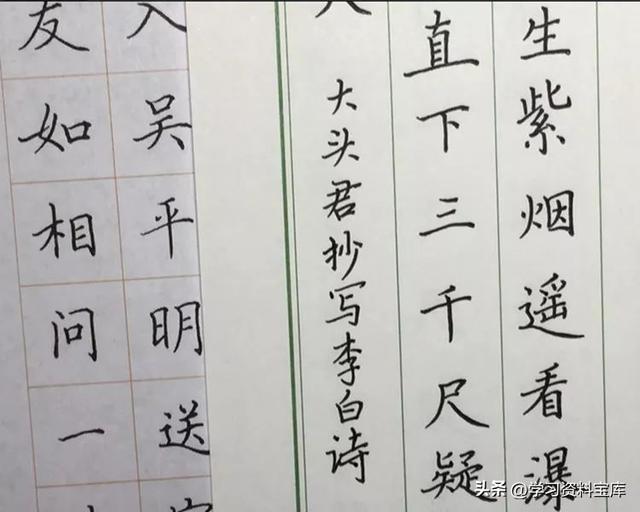 生紫烟遥看瀑
直下三千尺疑
大头君抄写李白诗
入吴平明送
友如相问一
头条 @学习资料宝库